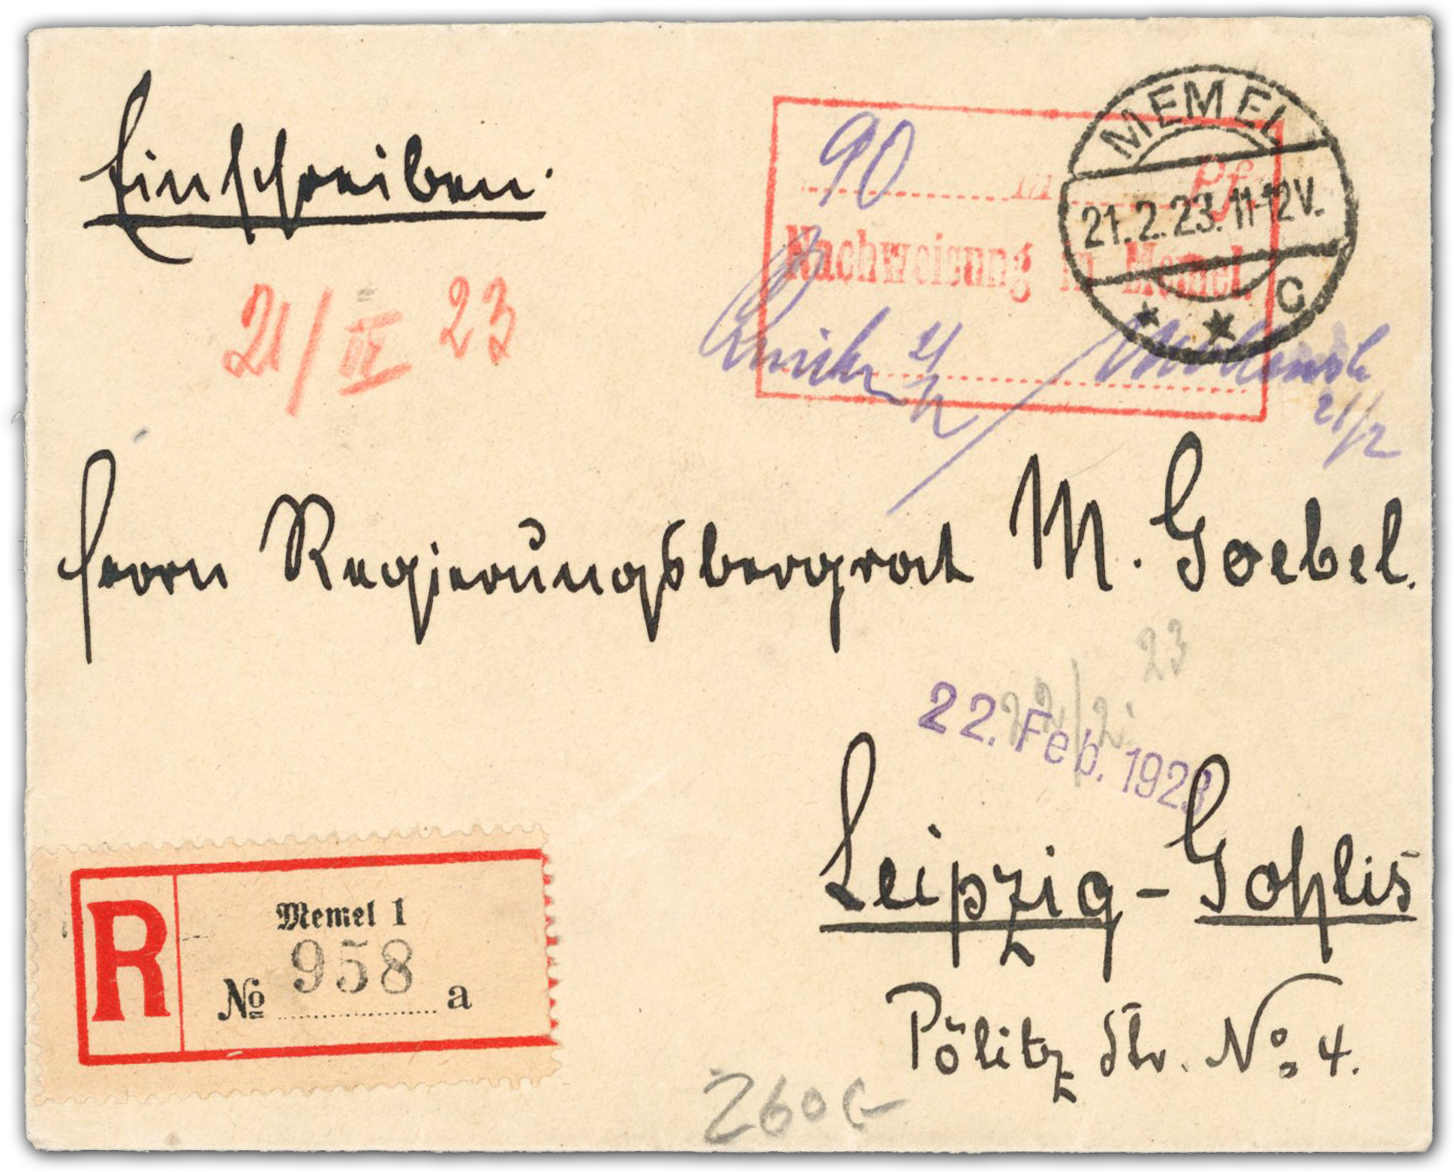 Einschreiben.
21/II 23
90 M Pf
Nachweisung in Memel.
21/2
21/2
MEMEL
21.2.23.11-12V.
* * C
Herrn Regierungsbergrat M. Goebel.
22/2. 23
22. Feb. 1923
Leipzig-Gohlis
Pölitz Str. No. 4.
R
Memel 1
No 958 a
260